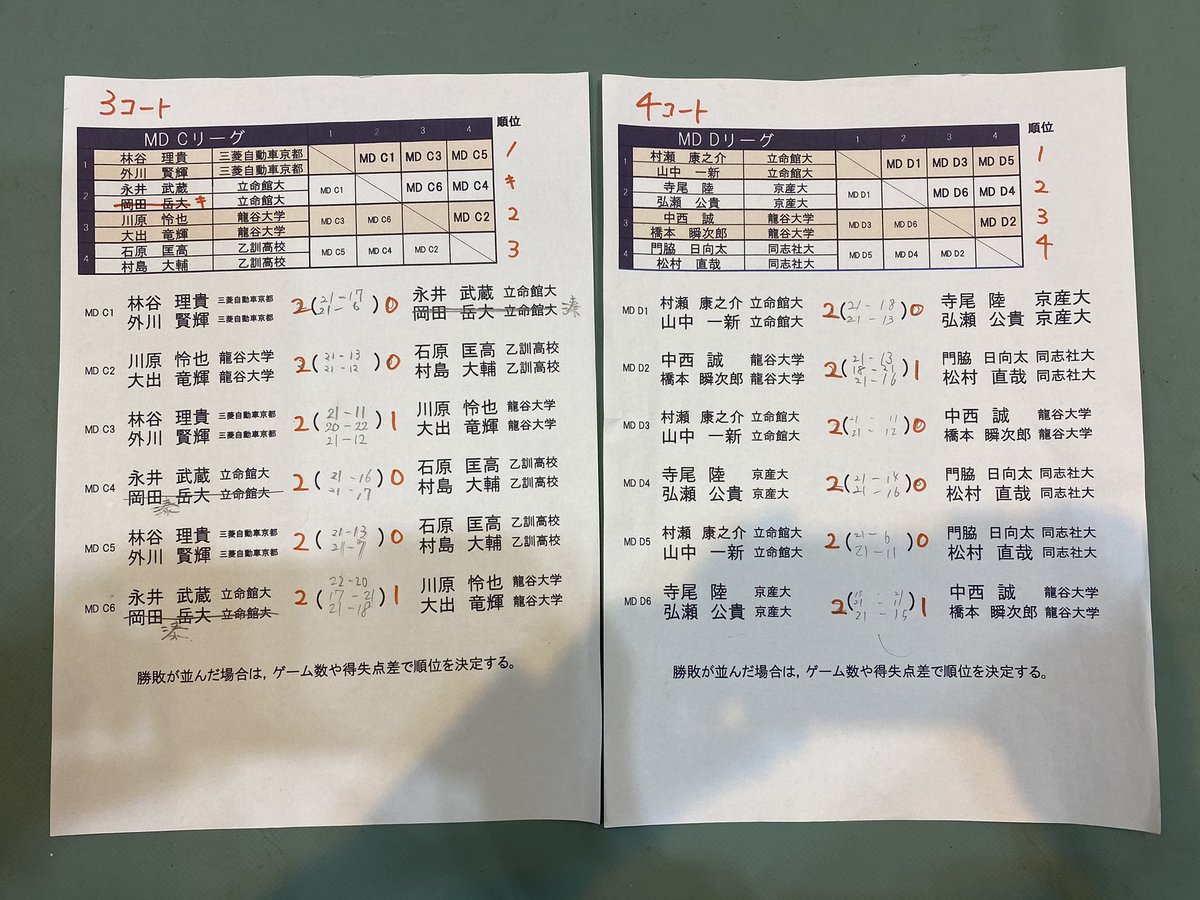 3コート
MD Cリーグ 1 2 3 4 順位
1 林谷 理貴 三菱自動車京都 MD C1 MD C3 MD C5 1
外川 賢輝 三菱自動車京都
2 永井 武蔵 立命館大 MD C1 MD C6 MD C4 キ
岡田 岳大 キ 立命館大
3 川原 怜也 龍谷大学 MD C3 MD C6 MD C2 2
大出 竜輝 龍谷大学
4 石原 匡高 乙訓高校 MD C5 MD C4 MD C2 3
村島 大輔 乙訓高校
MD C1 林谷 理貴 三菱自動車京都 2 ( 21-17 ) 0 永井 武蔵 立命館大
外川 賢輝 三菱自動車京都 21-6 岡田 岳大 立命館大
MD C2 川原 怜也 龍谷大学 2 ( 21-13 ) 0 石原 匡高 乙訓高校
大出 竜輝 龍谷大学 21-12 村島 大輔 乙訓高校
MD C3 林谷 理貴 三菱自動車京都 2 ( 21-11 ) 1 川原 怜也 龍谷大学
外川 賢輝 三菱自動車京都 20-22 大出 竜輝 龍谷大学
21-12
MD C4 永井 武蔵 立命館大 2 ( 21-16 ) 0 石原 匡高 乙訓高校
岡田 岳大 立命館大 21-17 村島 大輔 乙訓高校
MD C5 林谷 理貴 三菱自動車京都 2 ( 21-13 ) 0 石原 匡高 乙訓高校
外川 賢輝 三菱自動車京都 21-7 村島 大輔 乙訓高校
22-20
MD C6 永井 武蔵 立命館大 2 ( 17-21 ) 1 川原 怜也 龍谷大学
岡田 岳大 立命館大 21-18 大出 竜輝 龍谷大学
勝敗が並んだ場合は，ゲーム数や得失点差で順位を決定する。
4コート
MD Dリーグ 1 2 3 4 順位
1 村瀬 康之介 立命館大 MD D1 MD D3 MD D5 1
山中 一新 立命館大
2 寺尾 陸 京産大 MD D1 MD D6 MD D4 2
弘瀬 公貴 京産大
3 中西 誠 龍谷大学 MD D3 MD D6 MD D2 3
橋本 瞬次郎 龍谷大学
4 門脇 日向太 同志社大 MD D5 MD D4 MD D2 4
松村 直哉 同志社大
MD D1 村瀬 康之介 立命館大 2 ( 21-18 ) 0 寺尾 陸 京産大
山中 一新 立命館大 21-13 弘瀬 公貴 京産大
MD D2 中西 誠 龍谷大学 2 ( 21-13 ) 1 門脇 日向太 同志社大
橋本 瞬次郎 龍谷大学 18-21 松村 直哉 同志社大
21-16
MD D3 村瀬 康之介 立命館大 2 ( 21-11 ) 0 中西 誠 龍谷大学
山中 一新 立命館大 21-12 橋本 瞬次郎 龍谷大学
MD D4 寺尾 陸 京産大 2 ( 21-14 ) 0 門脇 日向太 同志社大
弘瀬 公貴 京産大 21-16 松村 直哉 同志社大
MD D5 村瀬 康之介 立命館大 2 ( 21-6 ) 0 門脇 日向太 同志社大
山中 一新 立命館大 21-11 松村 直哉 同志社大
MD D6 寺尾 陸 京産大 2 ( 15-21 ) 1 中西 誠 龍谷大学
弘瀬 公貴 京産大 21-11 橋本 瞬次郎 龍谷大学
21-15
勝敗が並んだ場合は，ゲーム数や得失点差で順位を決定する。